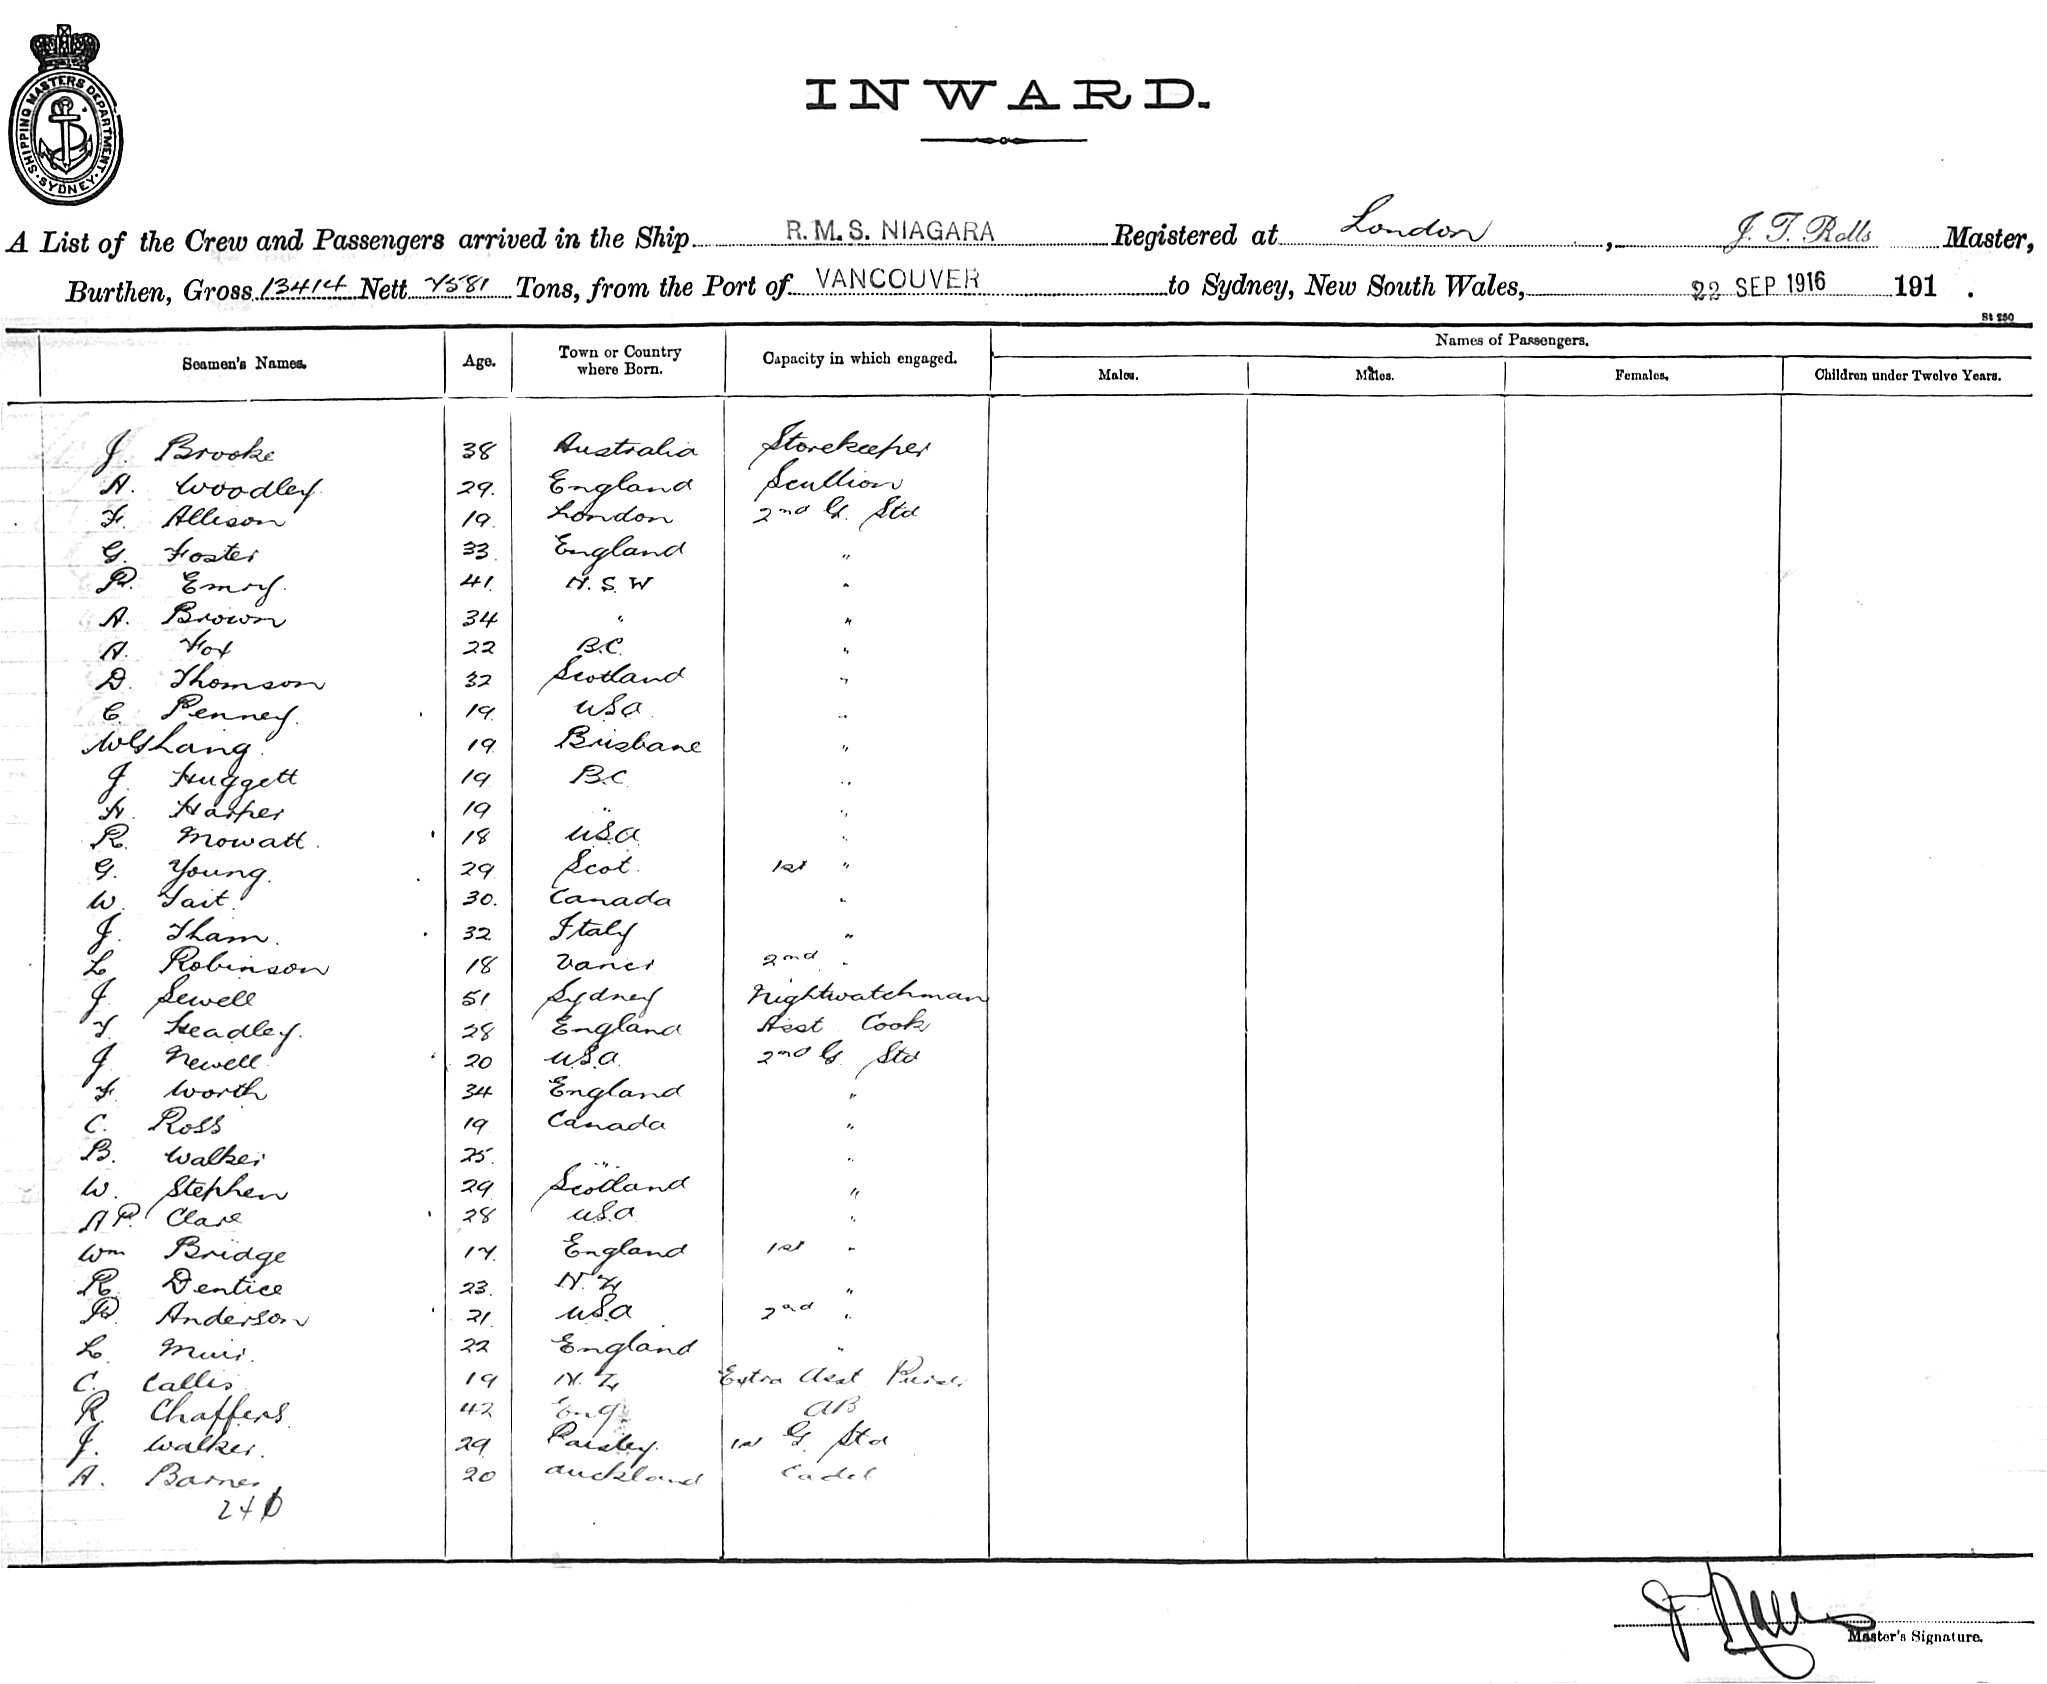 SHIPPING MASTERS DEPARTMENT. SYDNEY.
INWARD.
A List of the Crew and Passengers arrived in the Ship R.M.S. NIAGARA Registered at London, J. T. Rolls Master,
Burthen, Gross 13414 Nett 7581 Tons, from the Port of VANCOUVER to Sydney, New South Wales, 22 SEP 1916 191 .
St 250
Seamen's Names. Age. Town or Country where Born. Capacity in which engaged. Names of Passengers.
Males. Males. Females. Children under Twelve Years.
J. Brooke 38 Australia Storekeeper
A. Woodley 29. England Scullion
F. Allison 19 London 2nd G. Std
G. Foster 33 England "
R. Emry. 41. N.S.W "
A. Brown 34 " "
A. Fox 22 B.C. "
D. Thomson 32 Scotland "
C. Penney. 19 USA "
W G Lang. 19 Brisbane "
J. Huggett 19 B.C "
H. Harper 19 " "
R. Mowatt. 18 USA "
G. Young. 29 Scot. 1st "
W. Tait. 30. Canada "
J. Tham. 32 Italy "
L Robinson 18 Vancr 2nd "
J. Sewell 51 Sydney Nightwatchman
T. Headley. 28 England Asst Cook
J. Newell 20 U.S.A. 2nd G Std
F. Worth 34 England "
C. Ross 19 Canada "
B. Walker 25. " "
W. Stephen 29 Scotland "
A P. Clare 28 USA "
Wm Bridge 17. England 1st "
R. Dentice 23. N.Z "
R. Anderson 21. USA 2nd "
L. Muir. 22 England "
C. Callis 19 N.Z Extra Asst Purser
R Chaffers 42 Eng. AB
J. Walker. 29 Paisley. 1st G. Std
A. Barnes 20 Auckland Cadet
Master's Signature.